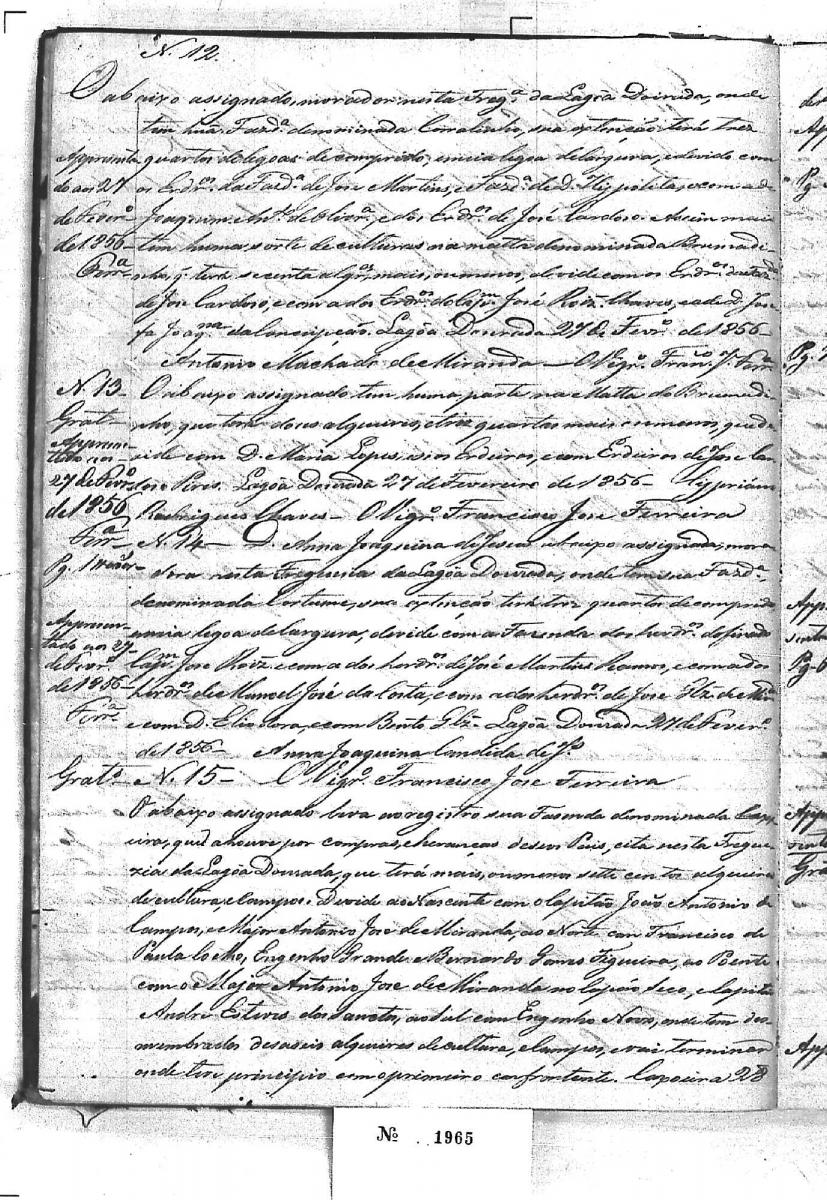 N. 12.
O abaixo assignado, morador nesta Fregª da Lagôa Doirada, onde
tem hua Fazdª denominada Corralinho, sua extenção terá trez
quartos de legoas de comprido, e meia legoa de largura, e devide com
os Erdrºs da Fazdª de Jose Martins, e Fazdª de D. Hyppolita, e com a de
Joaquim de Olivrª, e dos Erdrºs de José Cardoso. Assim mais
tem huma sorte de culturas na matta denominada Brumadi-
nho, q. terá secenta alqrºs, mais, ou menos, devide com os Erdrºs
de Jose Cardoso, e com a dos Erdrºs do Capm José Roiz Chaves, e a de D. Jose-
fa Joaqna da Conceição. Lagôa Dourada 27 de Fevrº de 1856
Antonio Machado de Miranda — O Vigrº Franco J. Ferrª
Appresenta
do aos 27
de Fevrº
de 1856
Ferrª
N 13
Gratˢ
Appresen-
tado aos
27 de Fevrº
de 1856
Ferrª
O abaixo assignado tem huma parte na Matta do Brumadi-
nho, que tera dous alqueires, e trez quartas mais ou menos, que de-
vide com D. Maria Lopes, e seos Erdeiros, e com Erdeiros de Jose Car-
doso Pires. Lagôa Dourada 27 de Fevereiro de 1856 — Cyprianno
Rodrigues Chaves — O Vigrº Francisco Jose Ferreira
Pg.
N. 14 — D. Anna Joaquina de Jesus abaixo assignada, mora-
dora nesta Freguesia da Lagôa Dourada, onde tem sua Fazdª
denominada Costume, sua extinção terá trez quartos de comprido
e meia legoa de largura, devide com a Fazenda dos herdrºs do finado
Capm Jose Roiz e com a dos herdrºs de José Martins Ramos, e com a dos
herdrºs de Manoel José da Costa, e com a dos herdrºs de Jose Glz de
e com D. Eliodora, e com Bento Glz. Lagôa Dourada 27 de Feverº
de 1856 — Anna Joaquina Candida de Js
Appresen-
tado aos 27
de Fevrº
de 1856
Ferrª
Gratˢ
N. 15 — O Vigrº Francisco Jose Ferreira
O abaixo assignado leva ao registro sua Fasenda denominada Capo-
eira, que a houve por compras, e heranças de seos Pais, cita nesta Fregue-
zia da Lagôa Dourada, que terá mais, ou menos sette centos alqueires
de cultura, e campos. Devide ao Nascente com o Capitão João Antonio de
Campos, e Major Antonio Jose de Miranda, ao Norte com Francisco de
Paula Coelho, Engenho Grande, e Bernardo Gomes Figueira, ao Poente
com o Major Antonio Jose de Miranda no Capão Seco, e Capitão
Andre Esteves dos Sanctos, ao Sul com Engenho Novo, onde tem des-
membrados desaseis alqueires de cultura, e campos, e vai terminar
onde teve principio com o primeiro confrontente. Capoeira 28
Nº 1965